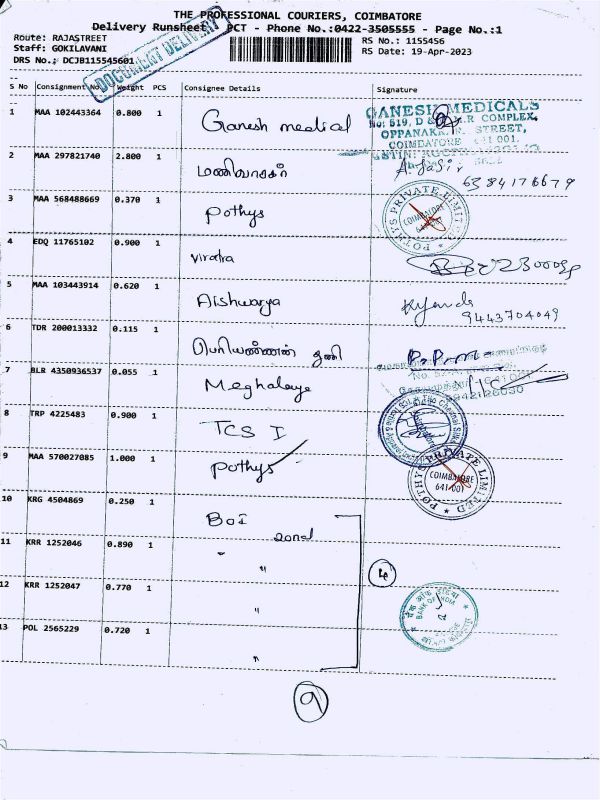 THE PROFESSIONAL COURIERS, COIMBATORE
Delivery Runsheet PCT - Phone No.:0422-3505555 - Page No.:1
Route: RAJASTREET
Staff: GOKILAVANI
DRS No.: DCJB115545601
RS No.: 1155456
RS Date: 19-Apr-2023
DOCUMENT DELIVERY
S No Consignment No Weight PCS Consignee Details Signature
1 MAA 102443364 0.800 1 Ganesh medical
GANESH MEDICALS
No: 519, D & COMPLEX,
OPPANAKARA STREET,
COIMBATORE 641 001.
2 MAA 297821740 2.800 1 மணிவாசகர்
6384176679
3 MAA 568488669 0.370 1 Pothys
POTHYS PRIVATE LIMITED
COIMBATORE
4 EDQ 11765102 0.900 1
5 MAA 103443914 0.620 1 Aishwarya
9443704049
6 TDR 200013332 0.115 1
7 BLR 4350936537 0.055 1 Meghalaye
8 TRP 4225483 0.900 1 TCS I
9 MAA 570027085 1.000 1 Pothys
POTHYS PRIVATE LIMITED
COIMBATORE
641 001
10 KRG 4504869 0.250 1 BOI
11 KRR 1252046 0.890 1 "
12 KRR 1252047 0.770 1 "
BANK OF INDIA
13 POL 2565229 0.720 1 "
9